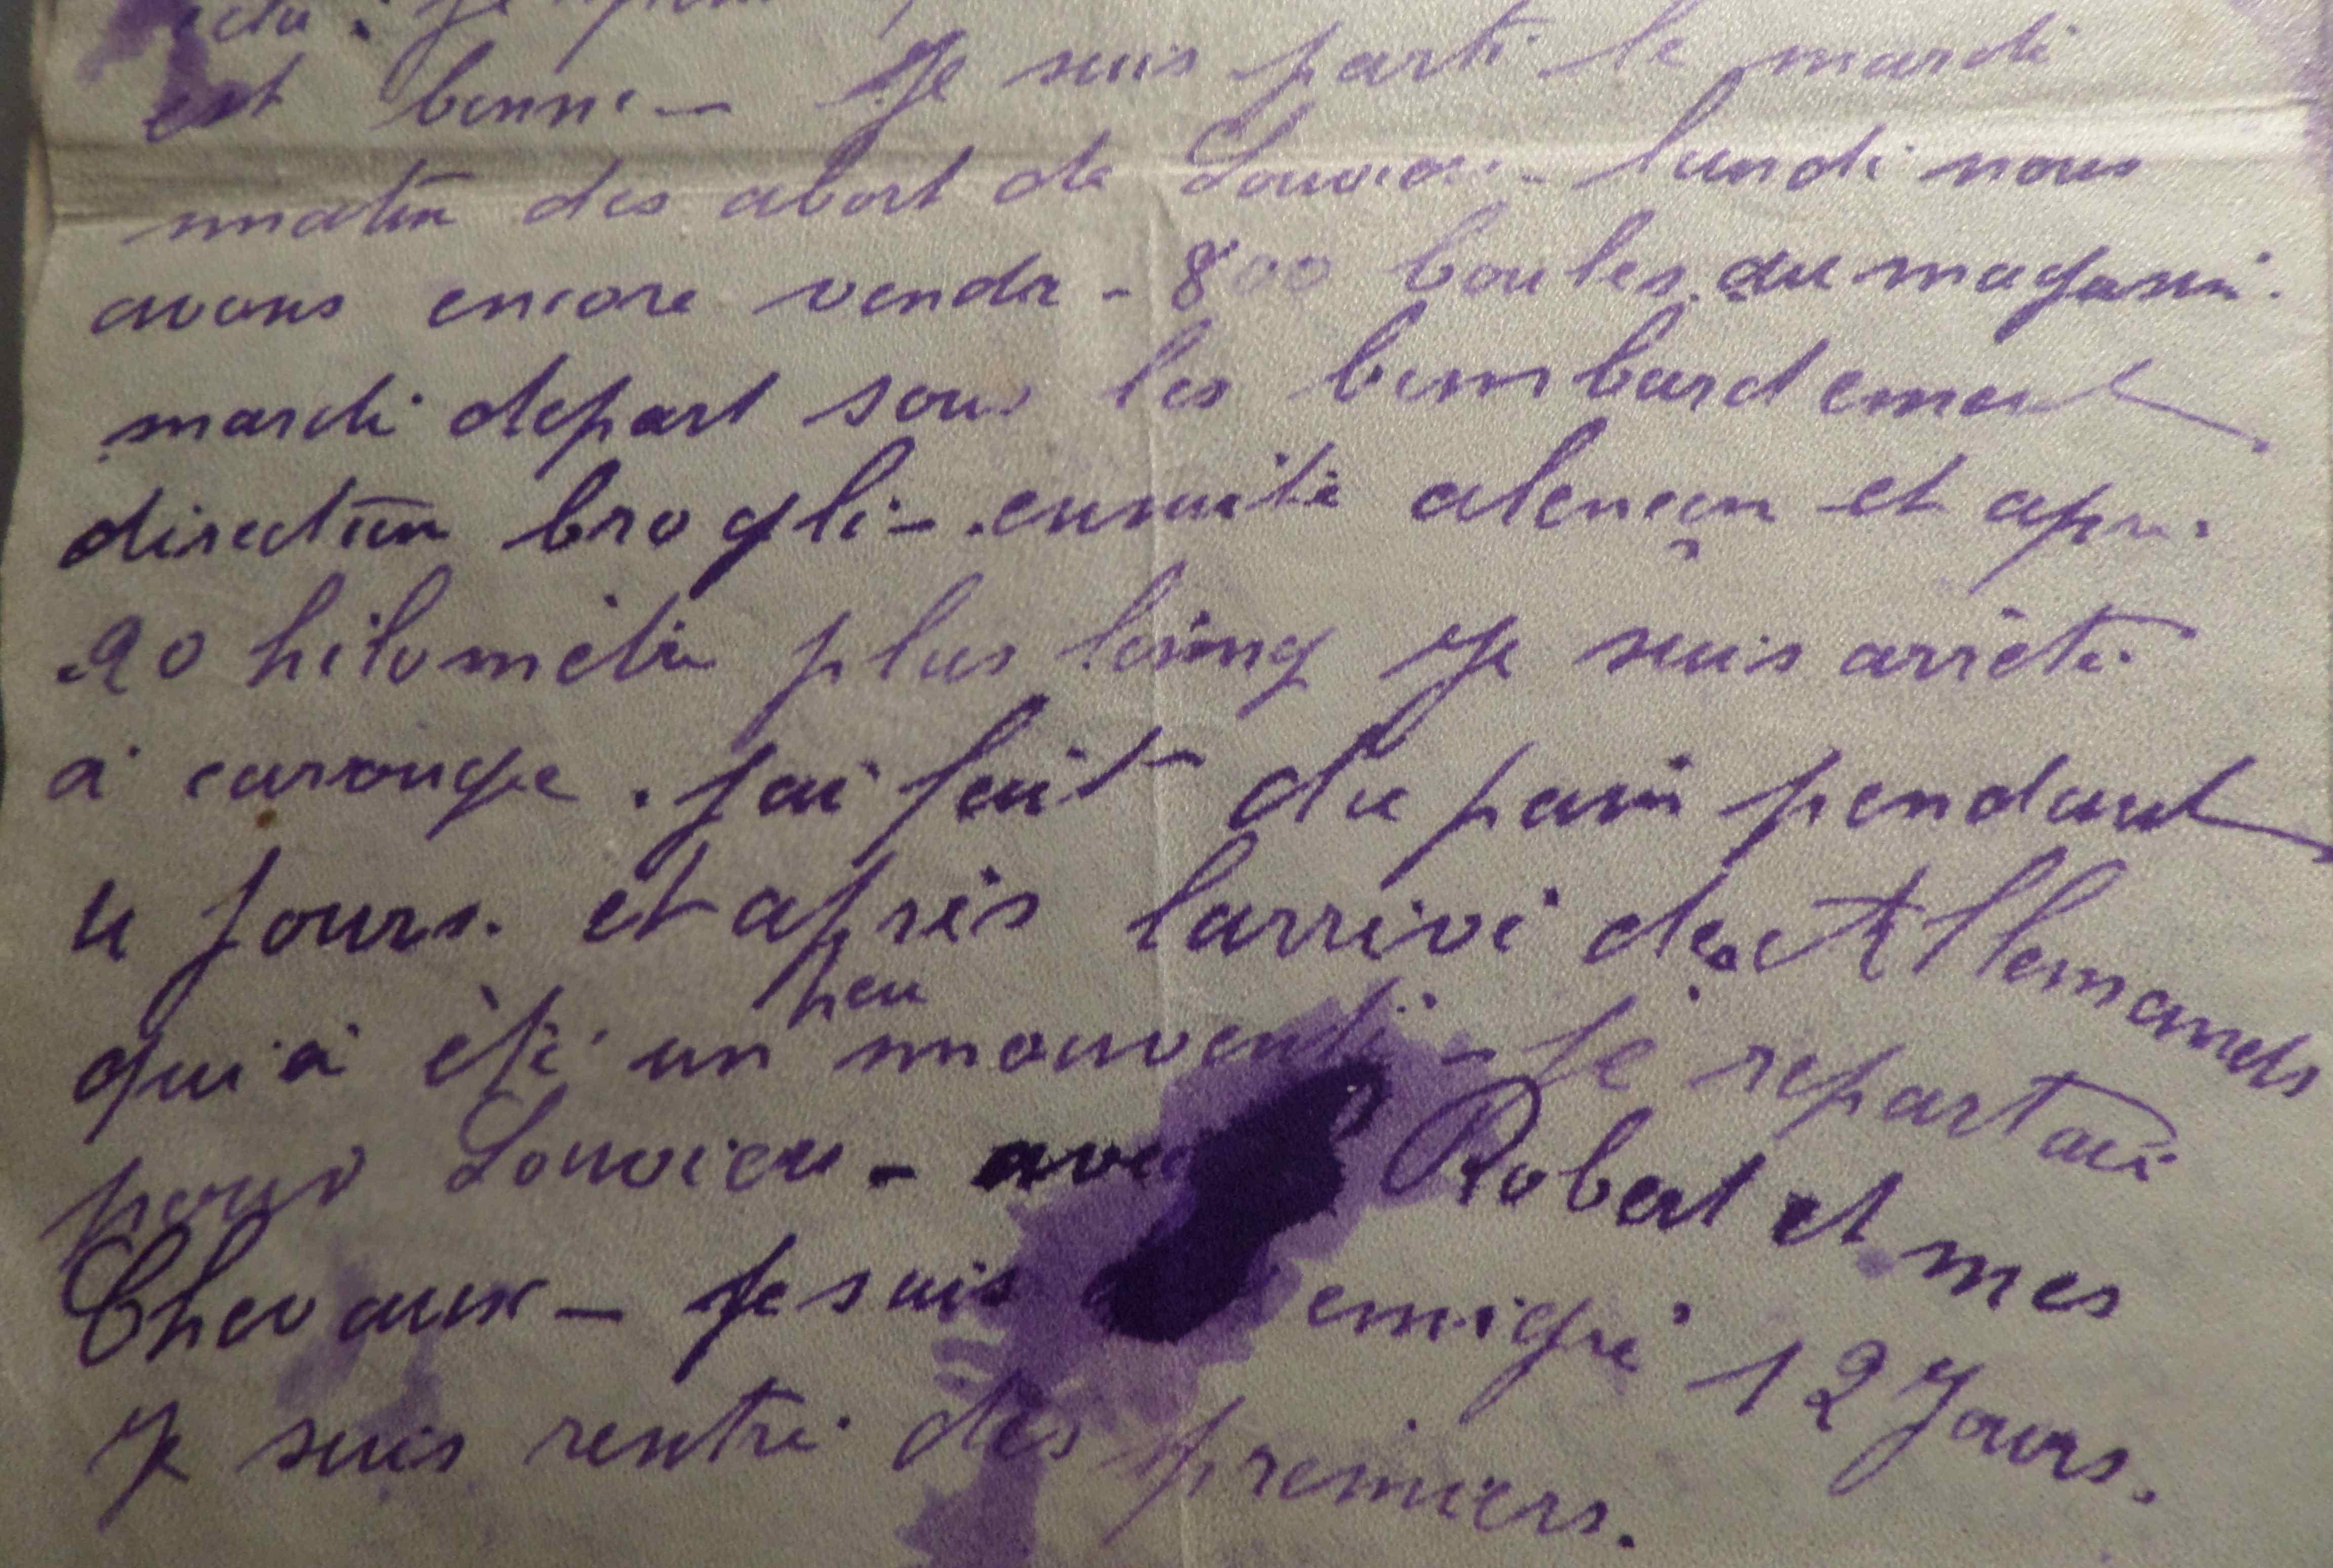 est bonne — Je suis parti le mardi
matin des abort de Louvier - lundi nous
avons encore vendu - 800 boules au magasin.
mardi depart sous les bombardement
direction brogli - ensuite alençon et apres
20 kilomètre plus loing Je suis arrêté
à carouge. J'ai fait du pain pendant
4 jours. et après larrivé des Allemands
qui à été un peu mouventé - je repartai
pour Louvier - avec Robert et mes
Chevaux - Je suis emigré 12 Jours.
Je suis rentré des premiers.